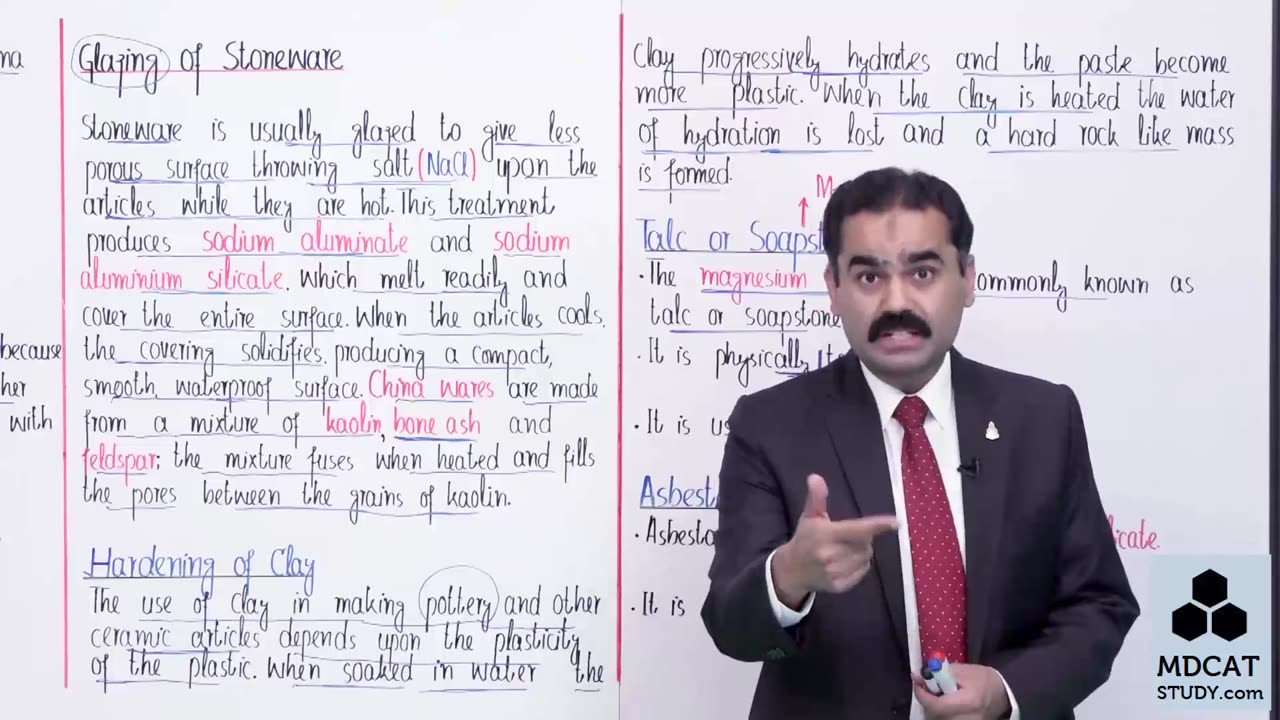 na
because
her
with
Glazing of Stoneware
Stoneware is usually glazed to give less
porous surface throwing salt (NaCl) upon the
articles while they are hot. This treatment
produces sodium aluminate and sodium
aluminium silicate. which melt readily and
cover the entire surface. When the articles cools.
the covering solidifies. producing a compact,
smooth, waterproof surface. China wares are made
from a mixture of kaolin, bone ash and
feldspar; the mixture fuses when heated and fills
the pores between the grains of kaolin.
Hardening of Clay
The use of clay in making pottery and other
ceramic articles depends upon the plasticity
of the plastic. when soaked in water the
Clay progressively hydrates and the paste become
more plastic. When the clay is heated the water
of hydration is lost and a hard rock like mass
is formed.
M
Talc or Soapst
· The magnesium ommonly known as
talc or soapstone
· It is physically
· It is us
Asbest
· Asbesto licate.
· It is
MDCAT
STUDY.com